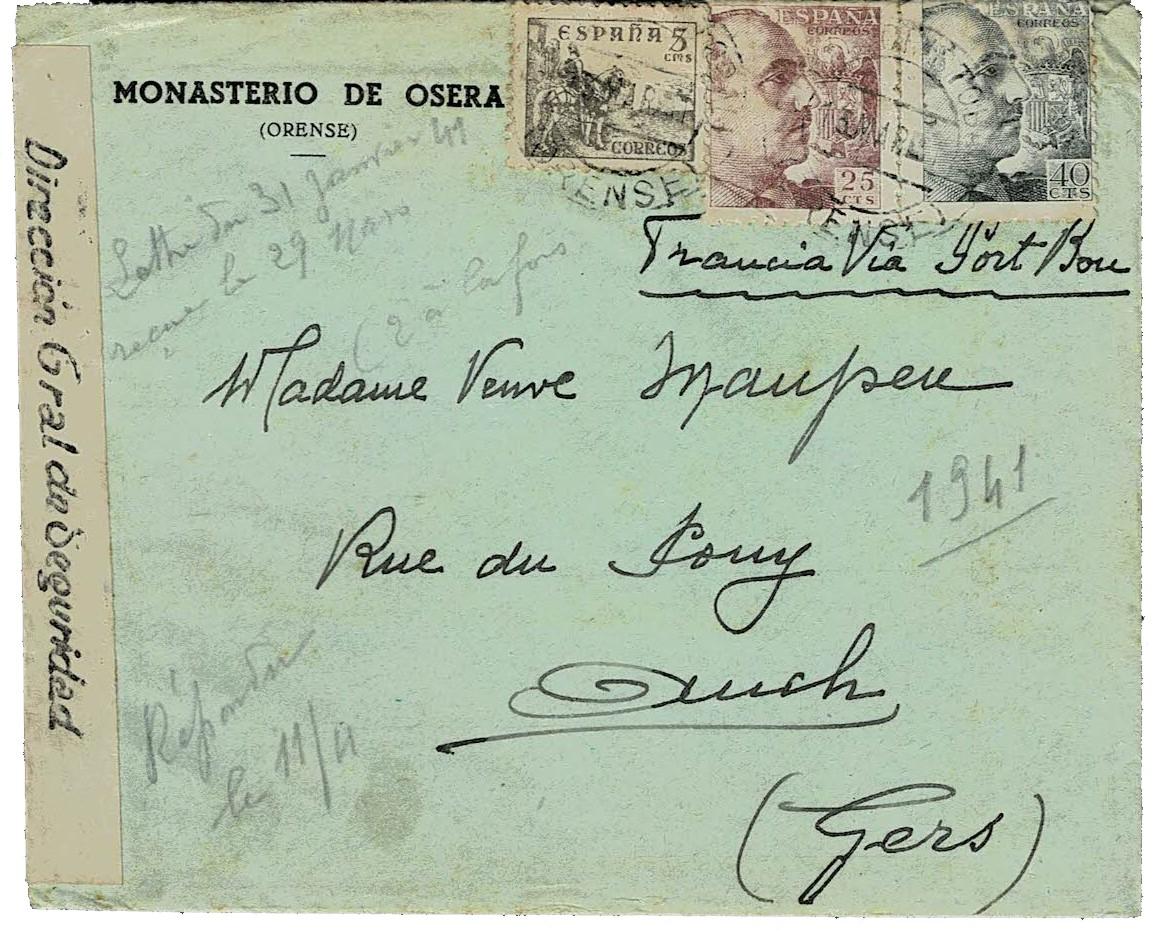 MONASTERIO DE OSERA
(ORENSE)
ESPAÑA 5
CMS
CORREOS
ESPAÑA
CORREOS
25
CTS
ESPAÑA
CORREOS
40
CTS
ORENSE
ORENSE
Francia Via Port Bou
Lettre du 31 Janvier 41
reçue le 29 Mars
(2 à la fois
Madame Veuve Maupeu
1941
Rue du Pouy
Auch
(Gers)
Répondu
le 11/4
Dirección Gral de Seguridad